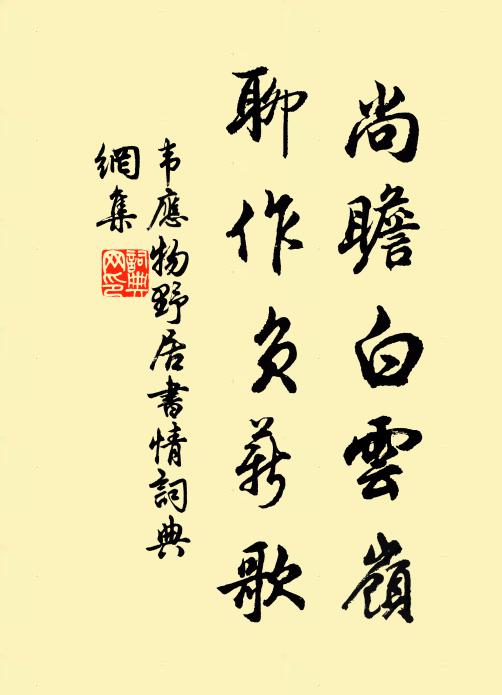 尚瞻白雲嶺
聊作負薪歌
韦應物野居書情詞典
網集
詞典
网印